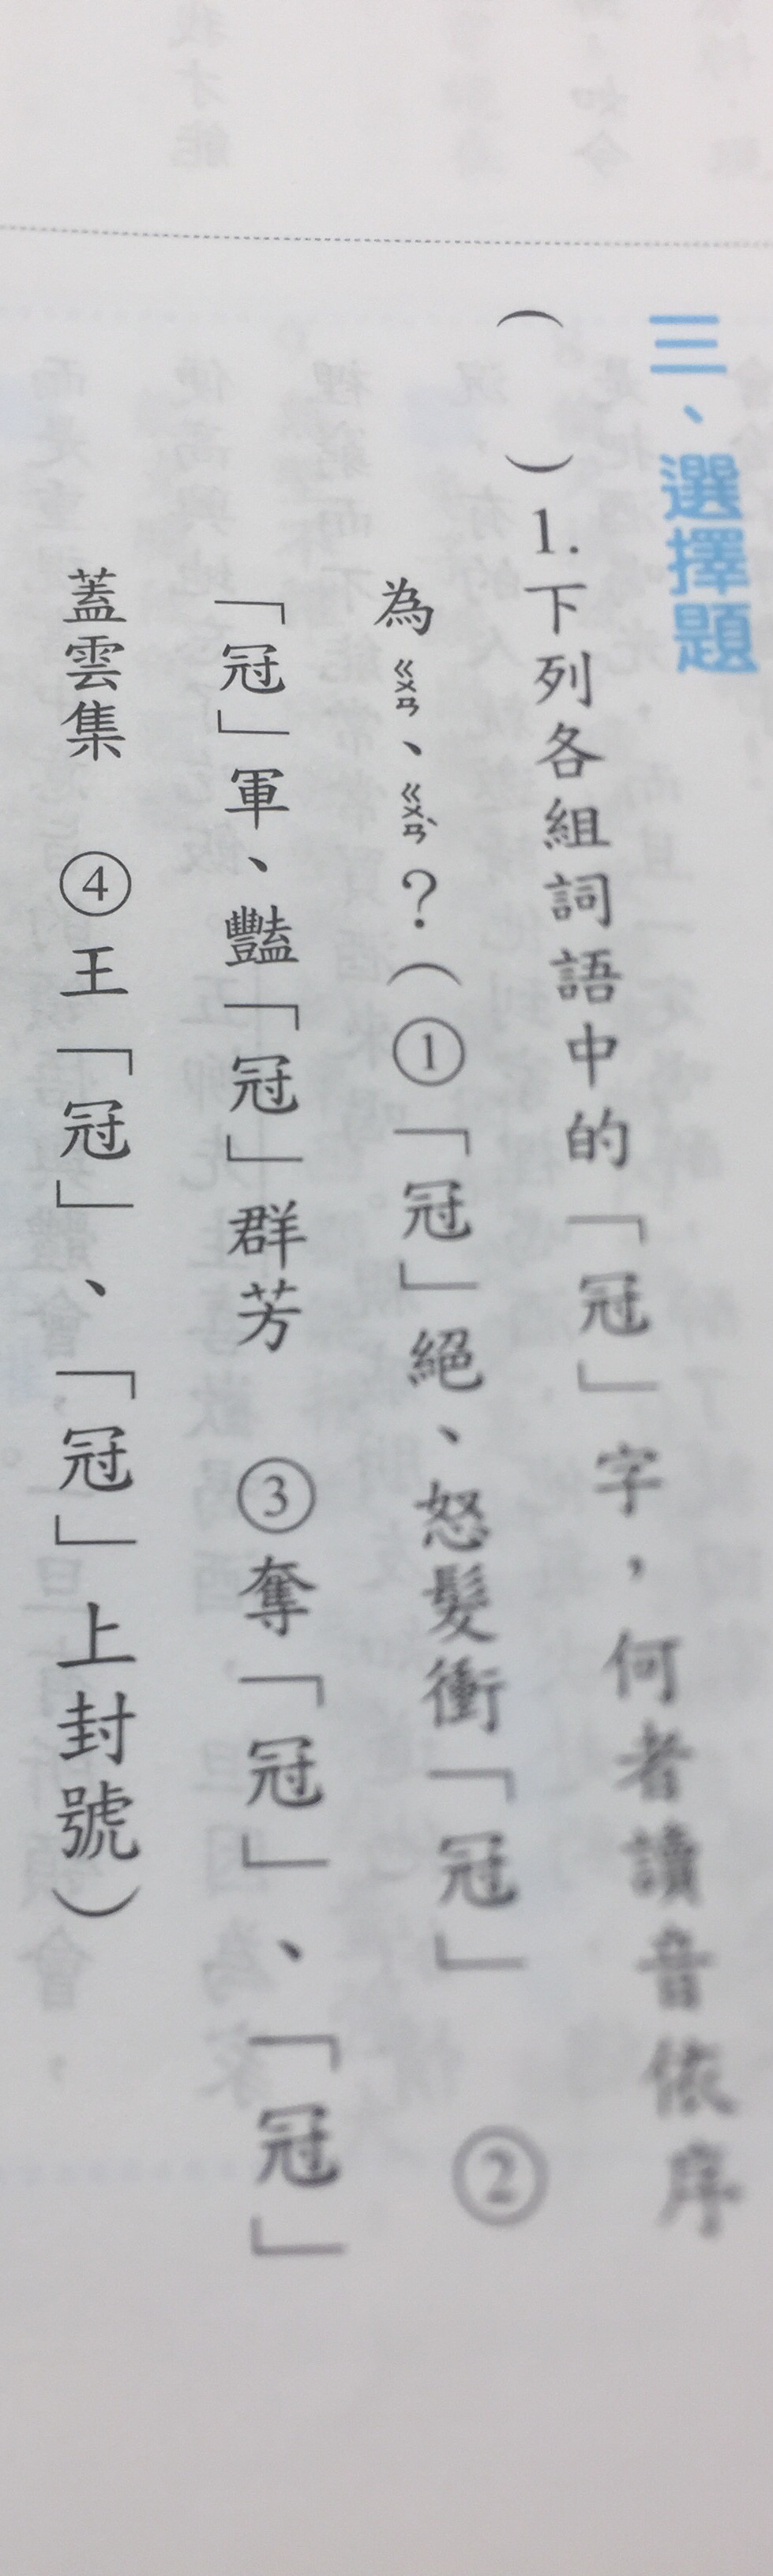 三、選擇題
（　）1.下列各組詞語中的「冠」字，何者讀音依序
為ㄍㄨㄢ、ㄍㄨㄢˋ？（①「冠」絕、怒髮衝「冠」　②
「冠」軍、豔「冠」群芳　③奪「冠」、「冠」
蓋雲集　④王「冠」、「冠」上封號）